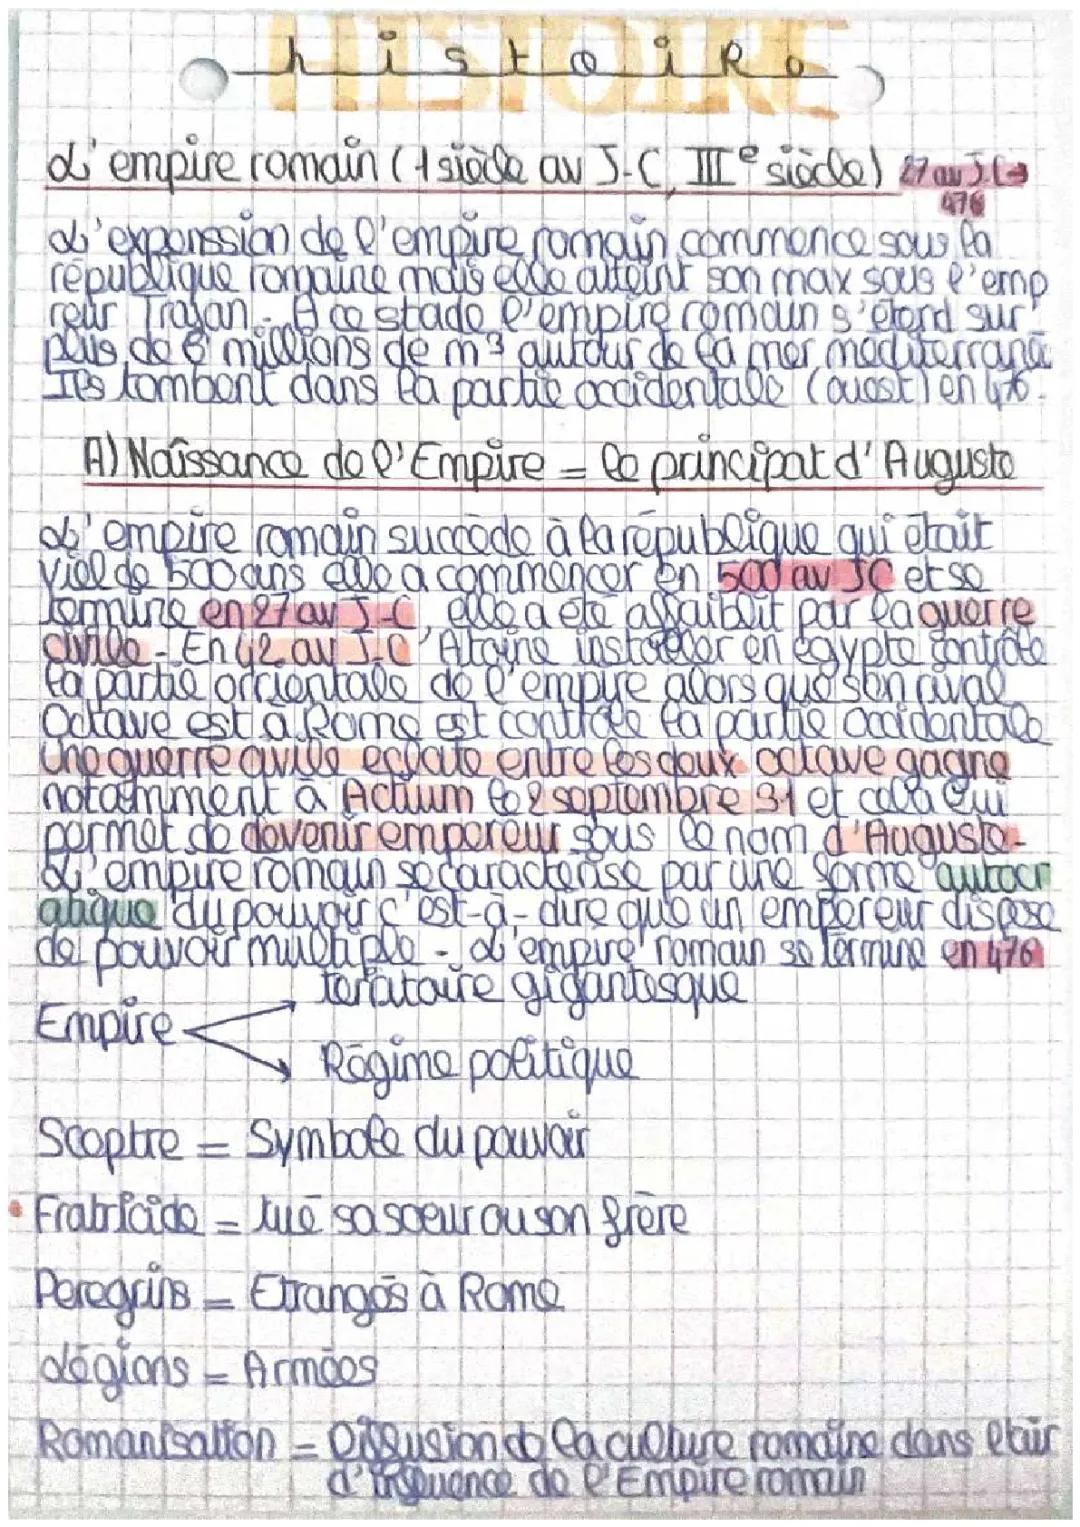 HISTOIRE
histoire
L'empire romain (1 siècle av J-C, IIIe siècle) 27 av J.C→
476
L'expenssion de l'empire romain commence sous la
république romaine mais elle atteint son max sous l'emp
reur Trajan. A ce stade l'empire romain s'étend sur
plus de 6 millions de m³ autour de la mer méditerrané
Ils tombent dans la partie occidentale (ouest) en 476.
A) Naissance de l'Empire = le principat d'Auguste
L'empire romain succède à la république qui était
viel de 500 ans elle a commencer en 500 av JC et se
termine en 27 av J-C elle a été affaiblit par la guerre
civile. En 42 av J-C Antoine installer en egypte contrôle
la partie orcientale de l'empire alors que son rival
Octave est à Rome est contrôle la partie occidentale
Une guerre civile eclate entre les deux octave gagne
notamment à Actium le 2 septembre 31 et cela lui
permet de devenir empereur sous le nom d'Auguste.
L'empire romain se caractérise par une forme autocr
atique du pouvoir c'est-à-dire que un empereur dispose
de pouvoir multiple. L'empire romain se termine en 476
territoire gigantesque
Empire
Régime politique
Sceptre = Symbole du pouvoir
Fratricide = tué sa soeur ou son frère
Peregrins = Etrangés à Rome
Légions = Armées
Romanisation = Diffusion de la culture romaine dans l'air
d'influence de l'Empire romain